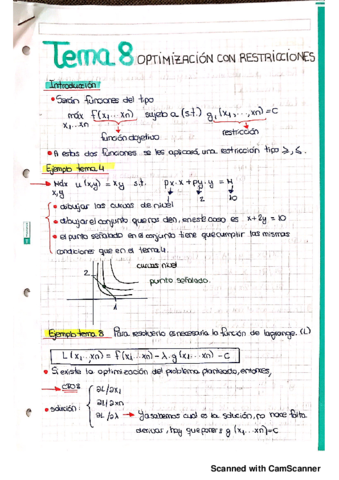 Tema 8 OPTIMIZACIÓN CON RESTRICCIONES
Introducción
• Serán funciones del tipo
máx f(x₁...xn) sujeto a (s.t.) g₁(x₁,...,xn)=C
x₁...xn
función objetivo restricción
• A estas dos funciones se les aplicará, una restricción tipo ≥, ≤.
Ejemplo tema 4
Máx u(x,y) = xy s.t. px·x + py·y = M
x,y
2 10
• dibujar las curvas de nivel
• dibujar el conjunto que nos den, en este caso es x+2y = 10
• el punto señalado en el conjunto tiene que cumplir las mismas
condiciones que en el tema 4.
curvas nivel
punto señalado.
2
Ejemplo tema 8 Para resolverlo es necesaria la función de lagrange. (L)
L(x₁...xn) = f(x₁...xn) - λ.g(x₁...xn) - C
• Si existe la optimización del problema planteado, entonces,
• solución:
∂L/∂x₁
∂L/∂xn
∂L/∂λ → Ya sabemos cual es la solución, no hace falta
derivar, hay que poner g(x₁...xn)=C
Scanned with CamScanner